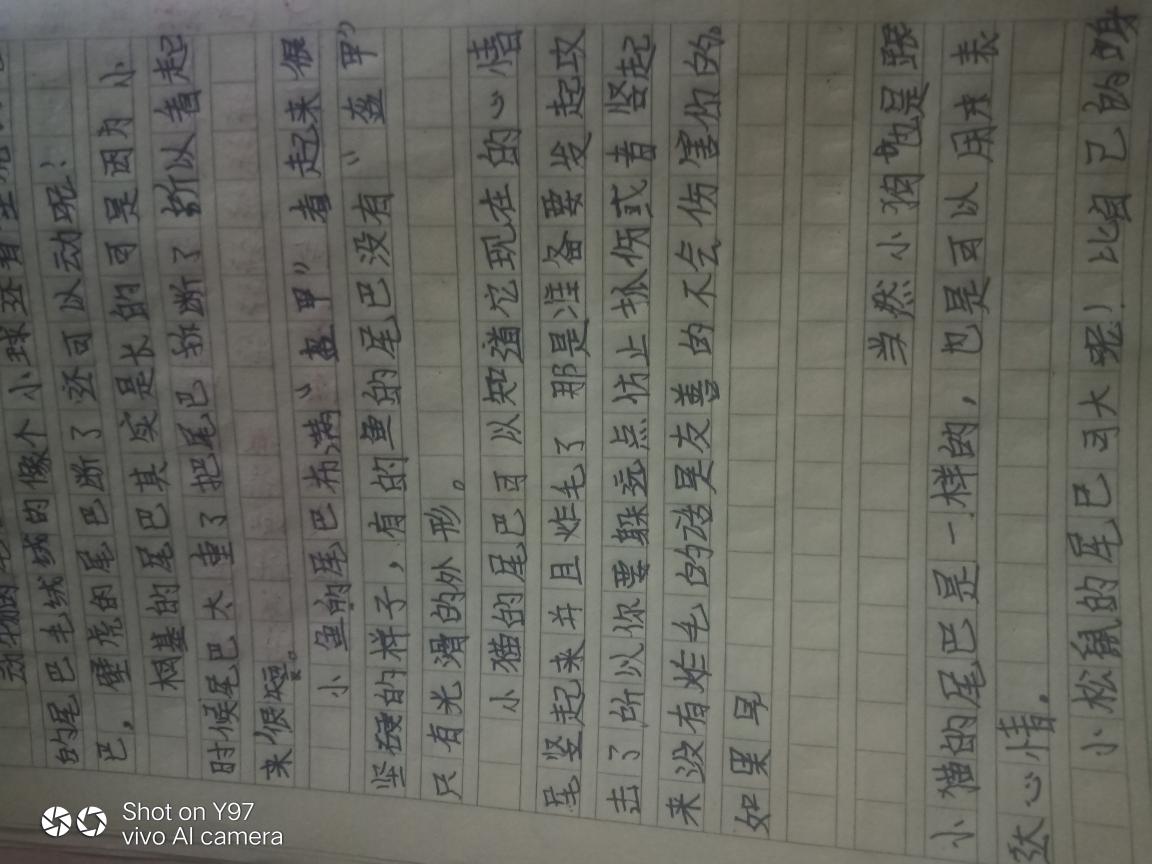 的尾巴毛绒绒的像个小球
巴，壁虎的尾巴断了还可以动呢！
根基的尾巴其实是长的可是因为小
时候尾巴太重了把尾巴 断了所以看起
来很短。
小鱼的尾巴布满“盔甲”看起来很
坚硬的样子，有的鱼的尾巴没有“盔甲”
只有光滑的外形。
小猫的尾巴可以知道它现在的心情
尾竖起来并且炸毛了那是准备要发起攻
击了所以你要躲远点防止抓伤或者竖起
来没有炸毛的话是友善的不会伤害你的。
如果
当然小狗也是跟
小猫的尾巴是一样的，也是可以用来表
达心情。
小松鼠的尾巴可大呢！比自己的身
Shot on Y97
vivo AI camera